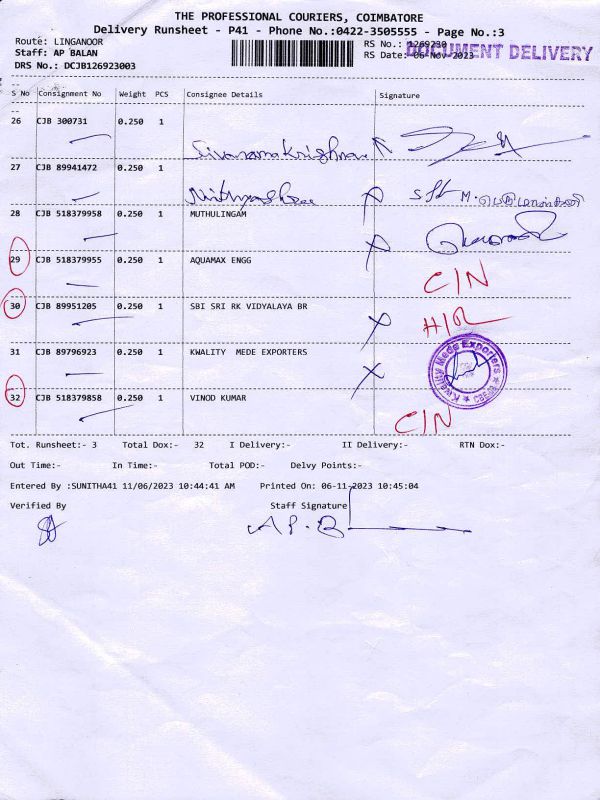 THE PROFESSIONAL COURIERS, COIMBATORE
Delivery Runsheet - P41 - Phone No.:0422-3505555 - Page No.:3
Route: LINGANOOR
RS No.: 1269230
DOCUMENT DELIVERY
Staff: AP BALAN
RS Date: 06-Nov-2023
DRS No.: DCJB126923003
S No Consignment No Weight PCS Consignee Details Signature
26 CJB 300731 0.250 1
Sivaramakrishnan
27 CJB 89941472 0.250 1
Nithyashree
28 CJB 518379958 0.250 1 MUTHULINGAM
29 CJB 518379955 0.250 1 AQUAMAX ENGG
C/N
30 CJB 89951205 0.250 1 SBI SRI RK VIDYALAYA BR
H/R
31 CJB 89796923 0.250 1 KWALITY MEDE EXPORTERS
Kwality Mede Exporters
32 CJB 518379858 0.250 1 VINOD KUMAR
C/N
Tot. Runsheet:- 3 Total Dox:- 32 I Delivery:- II Delivery:- RTN Dox:-
Out Time:- In Time:- Total POD:- Delvy Points:-
Entered By :SUNITHA41 11/06/2023 10:44:41 AM Printed On: 06-11-2023 10:45:04
Verified By Staff Signature
A P. B